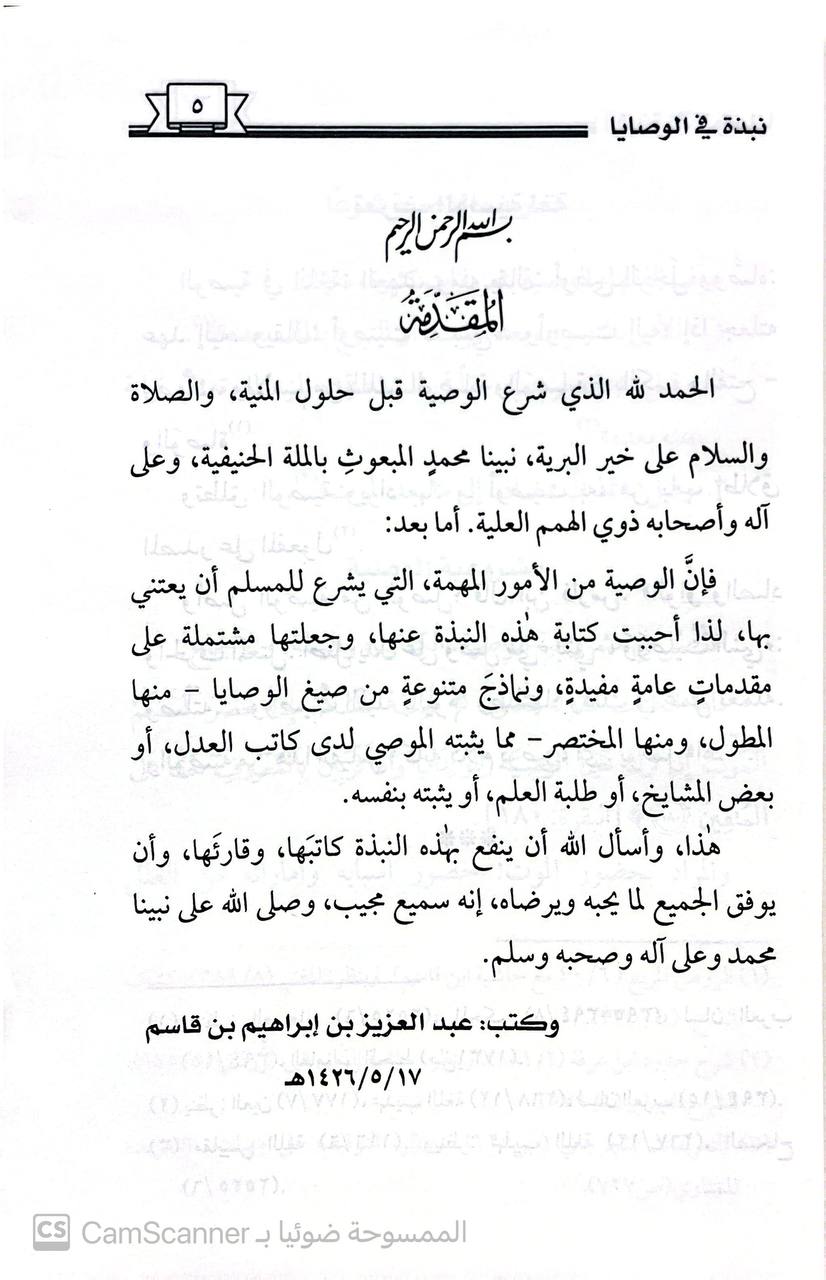 نبذة في الوصايا
٥
بسم الله الرحمن الرحيم
المُقَدِّمَةُ
الحمد لله الذي شرع الوصية قبل حلول المنية، والصلاة
والسلام على خير البرية، نبينا محمدٍ المبعوثِ بالملة الحنيفية، وعلى
آله وأصحابه ذوي الهمم العلية. أما بعد:
فإنَّ الوصية من الأمور المهمة، التي يشرع للمسلم أن يعتني
بها، لذا أحببت كتابة هٰذه النبذة عنها، وجعلتها مشتملة على
مقدماتٍ عامةٍ مفيدةٍ، ونماذجَ متنوعةٍ من صيغ الوصايا - منها
المطول، ومنها المختصر- مما يثبته الموصي لدى كاتب العدل، أو
بعض المشايخ، أو طلبة العلم، أو يثبته بنفسه.
هٰذا، وأسأل الله أن ينفع بهٰذه النبذة كاتبَها، وقارئَها، وأن
يوفق الجميع لما يحبه ويرضاه، إنه سميع مجيب، وصلى الله على نبينا
محمد وعلى آله وصحبه وسلم.
وكتب: عبد العزيز بن إبراهيم بن قاسم
١٤٢٦/٥/١٧هـ
CS CamScanner الممسوحة ضوئيا بـ